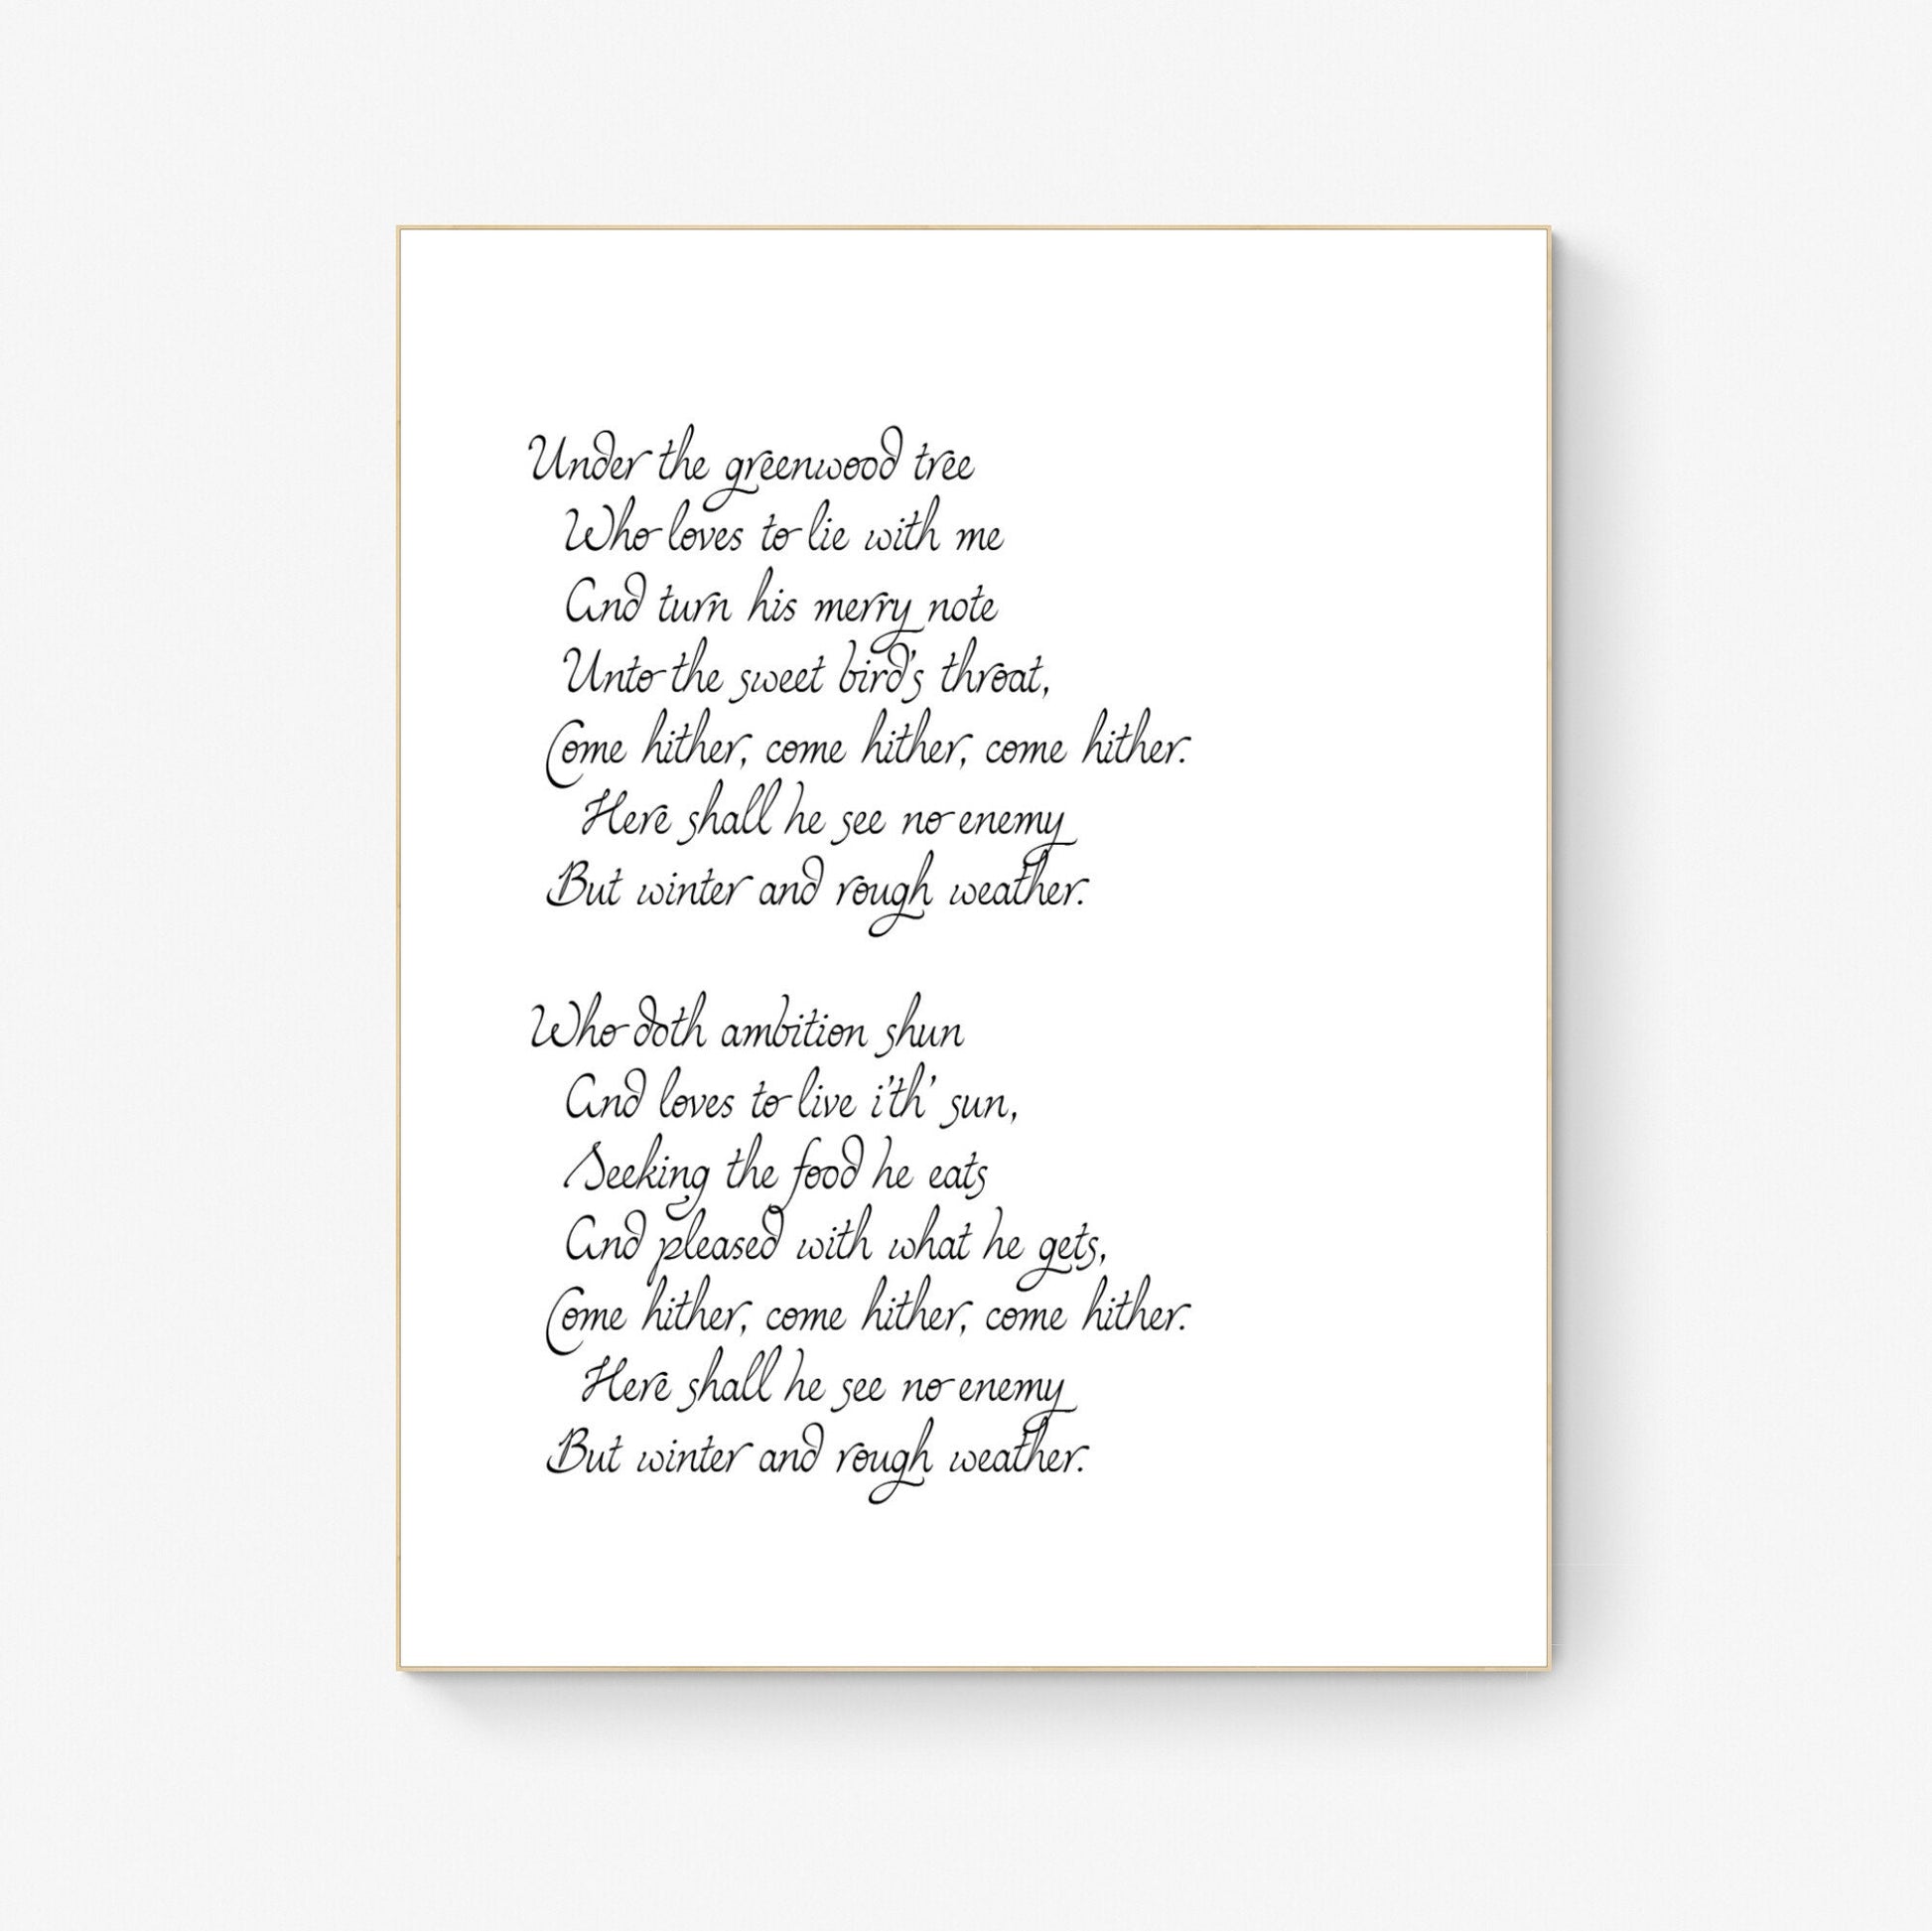 Under the greenwood tree
Who loves to lie with me
And turn his merry note
Unto the sweet bird's throat,
Come hither, come hither, come hither.
Here shall he see no enemy
But winter and rough weather.

Who doth ambition shun
And loves to live i'th' sun,
Seeking the food he eats
And pleased with what he gets,
Come hither, come hither, come hither.
Here shall he see no enemy
But winter and rough weather.